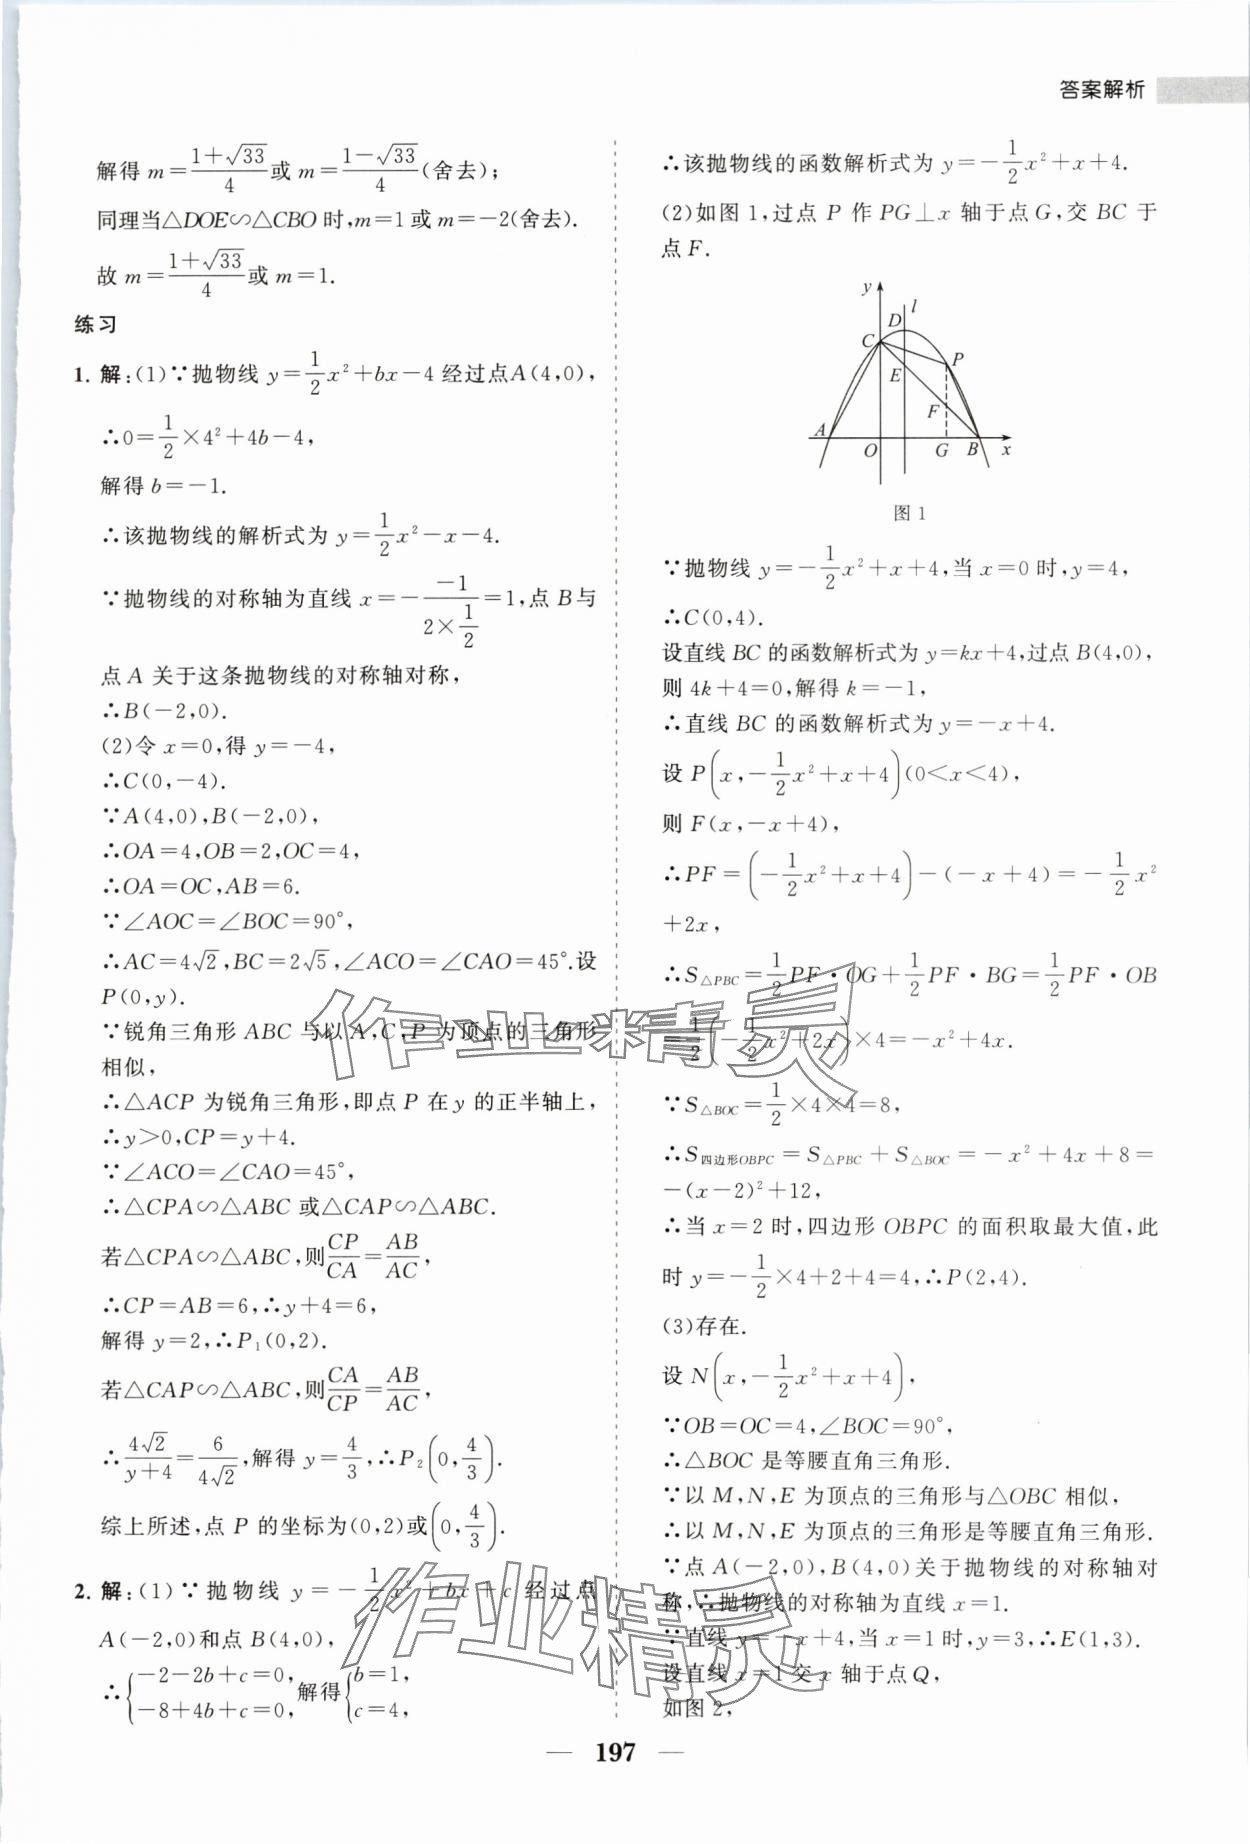 答案解析
解得 m=\frac{1+\sqrt{33}}{4}或 m=\frac{1-\sqrt{33}}{4}(舍去);
同理当△DOE∽△CBO 时,m=1 或 m=-2(舍去).
故 m=\frac{1+\sqrt{33}}{4}或 m=1.
练习
1. 解:(1)∵抛物线 y=\frac{1}{2}x²+bx-4 经过点A(4,0),
∴0=\frac{1}{2}×4²+4b-4,
解得 b=-1.
∴该抛物线的解析式为 y=\frac{1}{2}x²-x-4.
∵抛物线的对称轴为直线 x=-\frac{-1}{2×\frac{1}{2}}=1,点 B与
点 A 关于这条抛物线的对称轴对称,
∴B(-2,0).
(2)令 x=0,得 y=-4,
∴C(0,-4).
∵A(4,0),B(-2,0),
∴OA=4,OB=2,OC=4,
∴OA=OC,AB=6.
∵∠AOC=∠BOC=90°,
∴AC=4\sqrt{2},BC=2\sqrt{5},∠ACO=∠CAO=45°.设
P(0,y).
∵锐角三角形 ABC 与以 A,C,P 为顶点的三角形
相似,
∴△ACP 为锐角三角形,即点 P 在 y 的正半轴上,
∴y>0,CP=y+4.
∵∠ACO=∠CAO=45°,
∴△CPA∽△ABC 或△CAP∽△ABC.
若△CPA∽△ABC,则\frac{CP}{CA}=\frac{AB}{AC},
∴CP=AB=6,∴y+4=6,
解得 y=2,∴P₁(0,2).
若△CAP∽△ABC,则\frac{CA}{CP}=\frac{AB}{AC},
∴\frac{4\sqrt{2}}{y+4}=\frac{6}{4\sqrt{2}},解得 y=\frac{4}{3},∴P₂(0,\frac{4}{3}).
综上所述,点 P 的坐标为(0,2)或(0,\frac{4}{3}).
2. 解:(1)∵抛物线 y=-\frac{1}{2}x²+bx+c 经过点
A(-2,0)和点 B(4,0),
∴{-2-2b+c=0, -8+4b+c=0,解得{b=1, c=4,
∴该抛物线的函数解析式为 y=-\frac{1}{2}x²+x+4.
(2)如图 1,过点 P 作 PG⊥x 轴于点 G,交 BC 于
点 F.
y
D
l
C
P
E
F
A
O
G
B
x
图 1
∵抛物线 y=-\frac{1}{2}x²+x+4,当 x=0 时,y=4,
∴C(0,4).
设直线 BC 的函数解析式为 y=kx+4,过点 B(4,0),
则 4k+4=0,解得 k=-1,
∴直线 BC 的函数解析式为 y=-x+4.
设 P(x,-\frac{1}{2}x²+x+4)(0<x<4),
则 F(x,-x+4),
∴PF=(-\frac{1}{2}x²+x+4)-(-x+4)=-\frac{1}{2}x²
+2x,
∴S△PBC=\frac{1}{2}PF·OG+\frac{1}{2}PF·BG=\frac{1}{2}PF·OB
=\frac{1}{2}(-\frac{1}{2}x²+2x)×4=-x²+4x.
∵S△BOC=\frac{1}{2}×4×4=8,
∴S四边形OBPC=S△PBC+S△BOC=-x²+4x+8=
-(x-2)²+12,
∴当 x=2 时,四边形 OBPC 的面积取最大值,此
时 y=-\frac{1}{2}×4+2+4=4,∴P(2,4).
(3)存在.
设 N(x,-\frac{1}{2}x²+x+4),
∵OB=OC=4,∠BOC=90°,
∴△BOC 是等腰直角三角形.
∵以 M,N,E 为顶点的三角形与△OBC 相似,
∴以 M,N,E 为顶点的三角形是等腰直角三角形.
∵点 A(-2,0),B(4,0)关于抛物线的对称轴对
称,∴抛物线的对称轴为直线 x=1.
∵直线 y=-x+4,当 x=1 时,y=3,∴E(1,3).
设直线 x=1 交 x 轴于点Q,
如图 2,
作业精灵
作业精灵
— 197 —